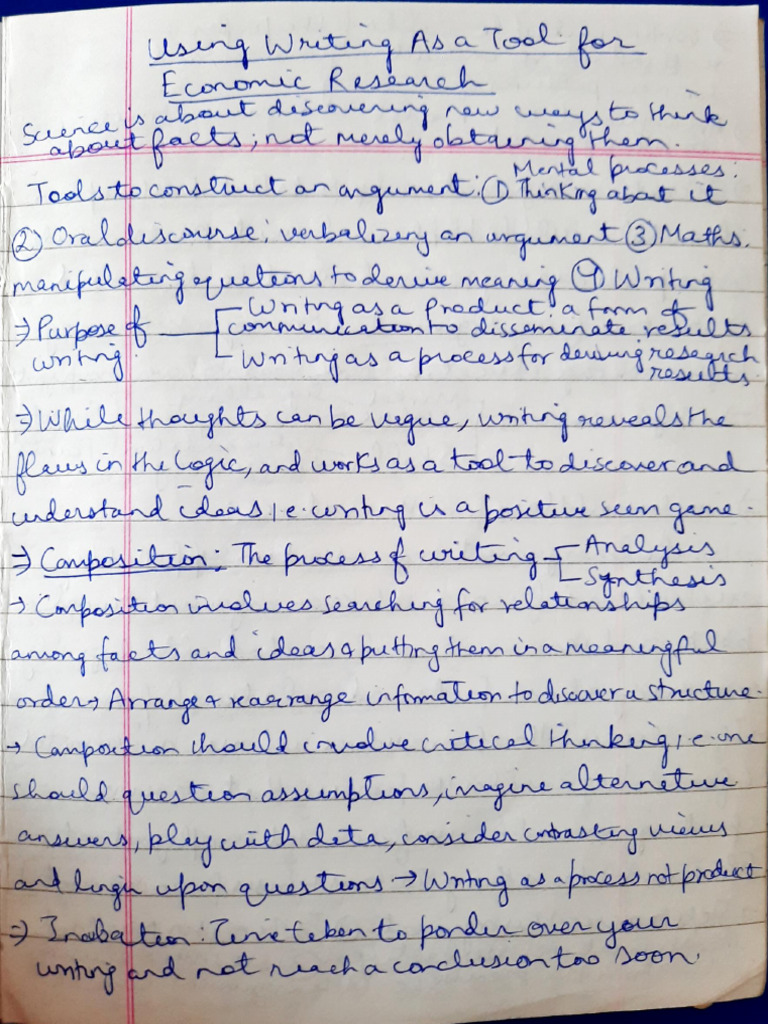 Using Writing As a Tool for
Economic Research
Science is about discovering new ways to think
about facts; not merely obtaining them.
Mental processes:
Tools to construct an argument: ① Thinking about it
② Oral discourse: verbalizing an argument ③ Maths:
manipulating equations to derive meaning ④ Writing
⇒ Purpose of writing:
Writing as a product: a form of
communication to disseminate results
Writing as a process for deriving research
results.
⇒ While thoughts can be vague, writing reveals the
flaws in the logic, and works as a tool to discover and
understand ideas i.e. writing is a positive sum game.
⇒ Composition: The process of writing
Analysis
Synthesis
→ Composition involves searching for relationships
among facts and ideas & putting them in a meaningful
order → Arrange & rearrange information to discover a structure.
→ Composition should involve critical thinking, i.e. one
should question assumptions, imagine alternative
answers, play with data, consider contrasting views
and upon questions → Writing as a process not product
⇒ Incubation: Time taken to ponder over your
writing and not reach a conclusion too soon.